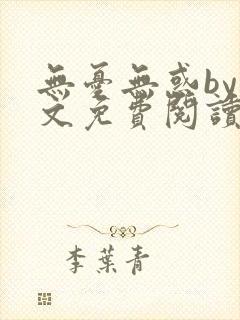 無憂無惑by
文免費閱讀
李葉青